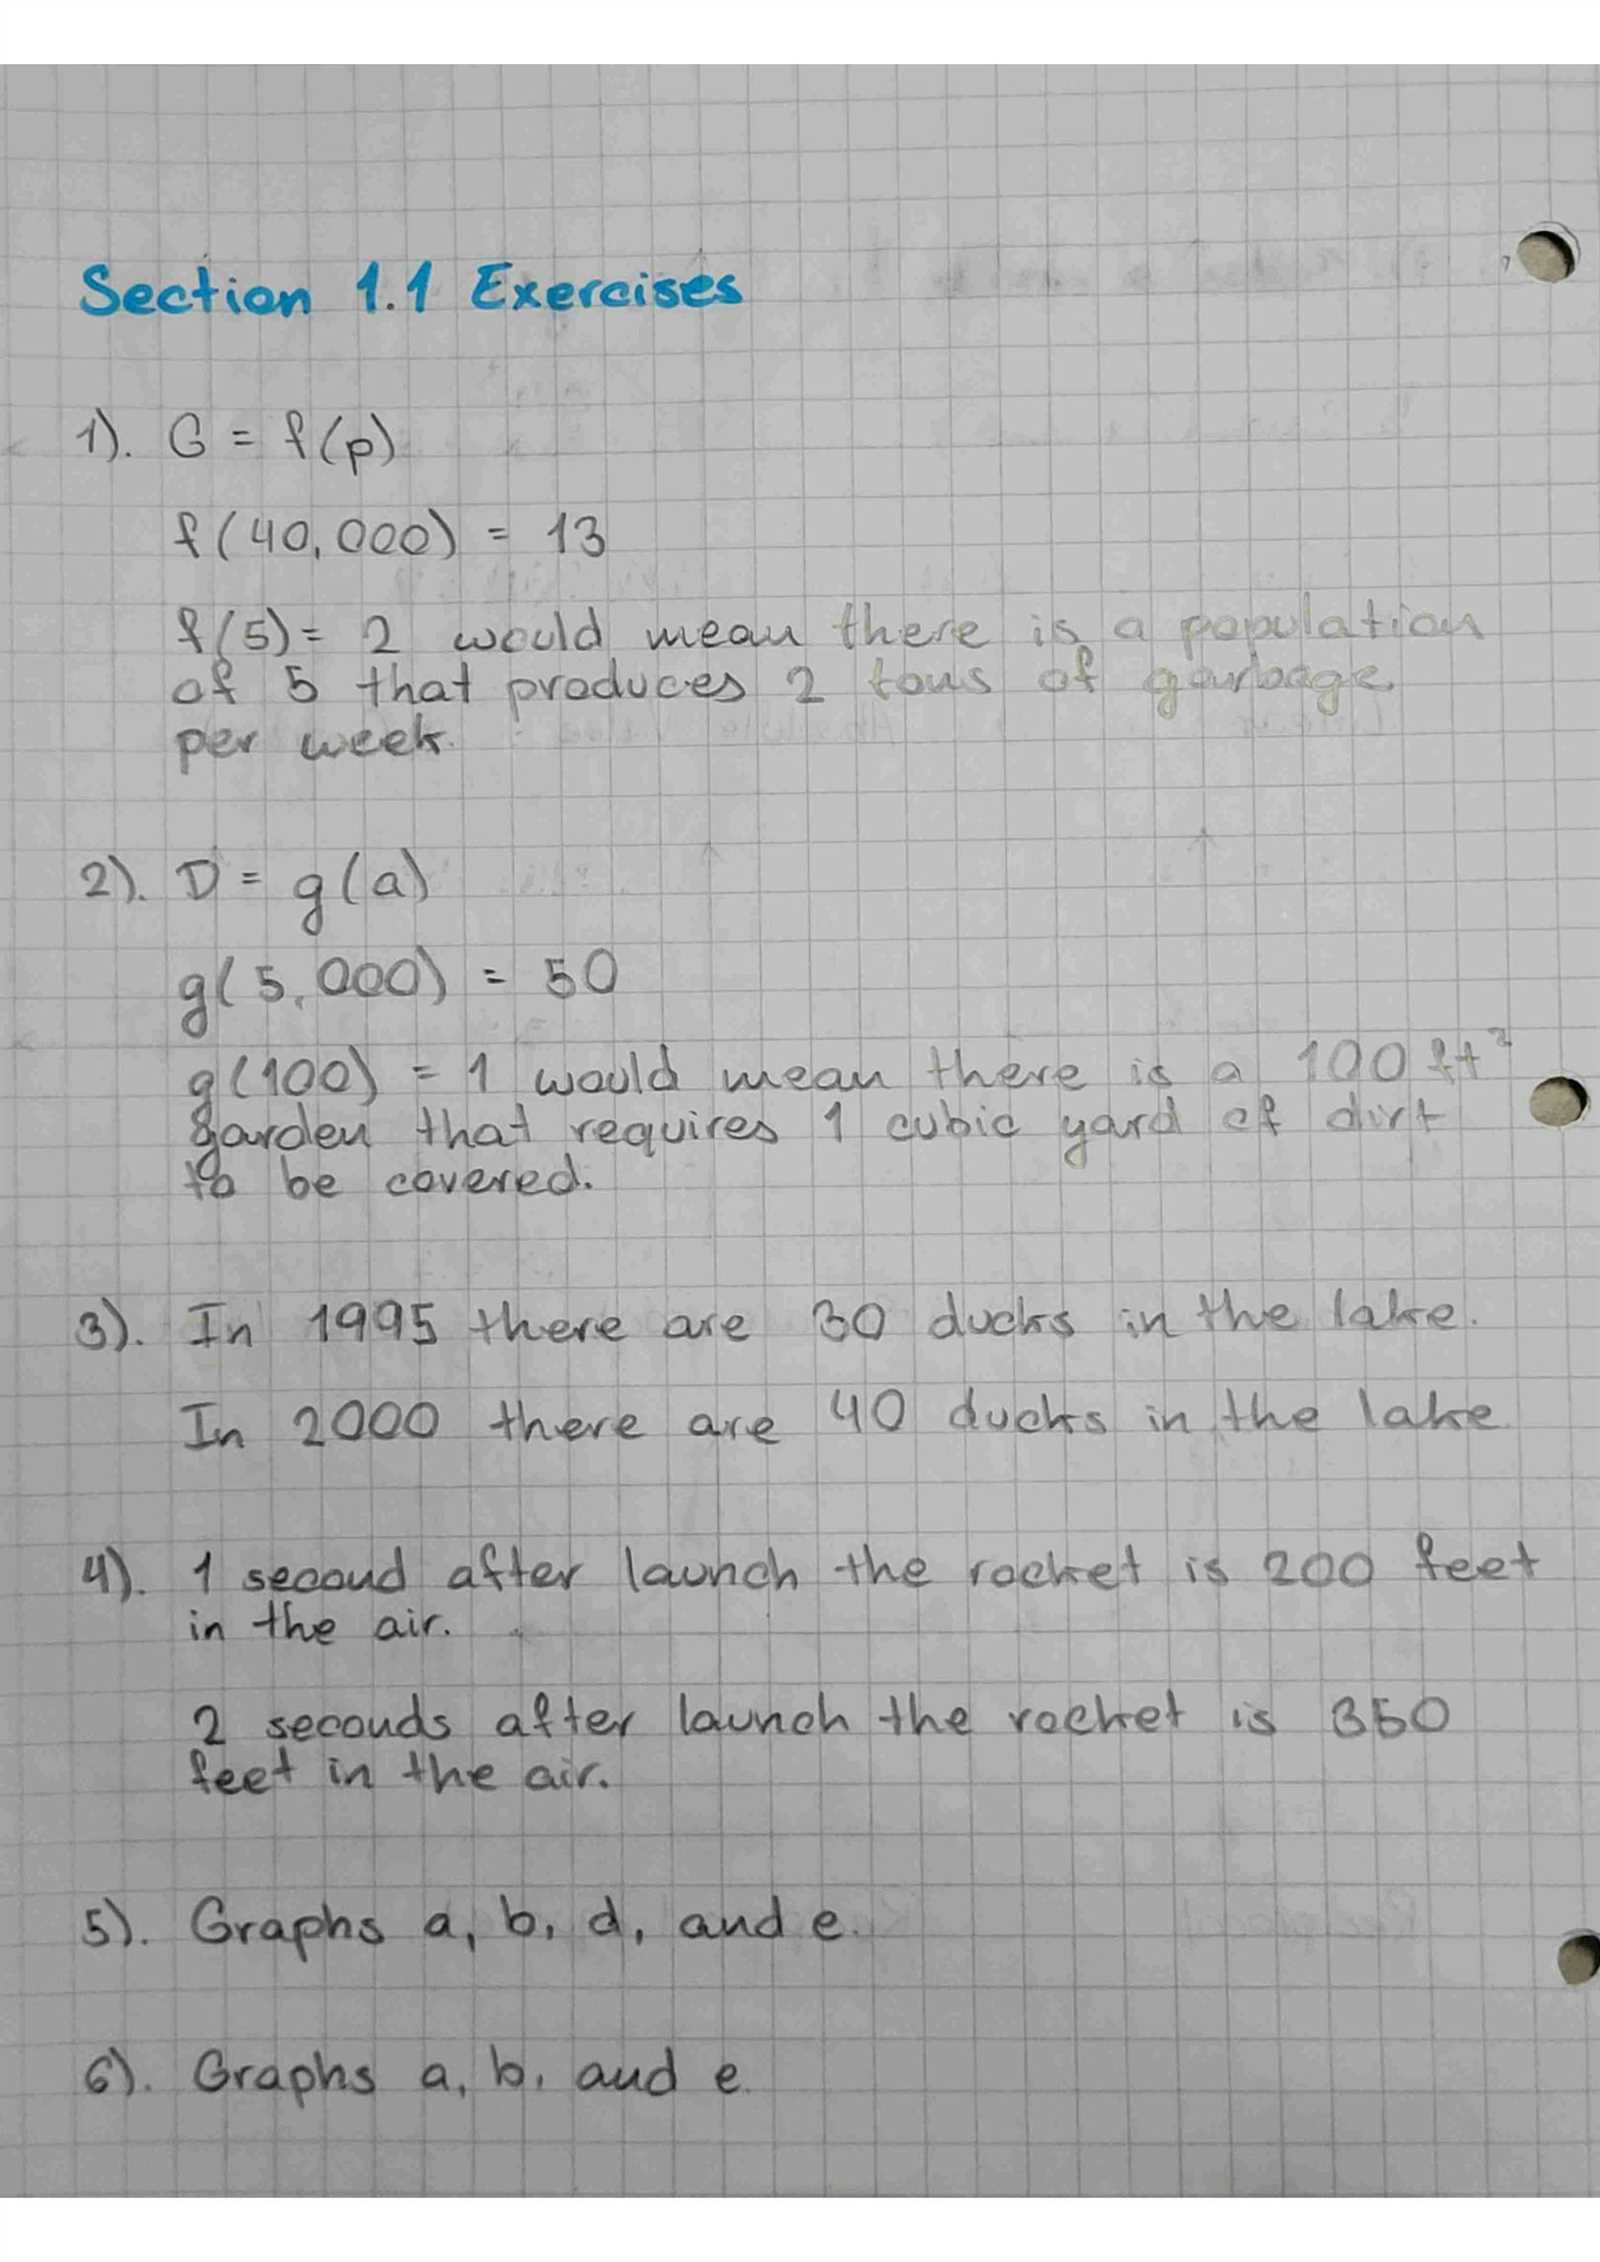 Section 1.1 Exercises
1). G = f(p)
f(40,000) = 13
f(5) = 2 would mean there is a population
of 5 that produces 2 tons of garbage
per week.
2). D = g(a)
g(5,000) = 50
g(100) = 1 would mean there is a 100 ft²
garden that requires 1 cubic yard of dirt
to be covered.
3). In 1995 there are 30 ducks in the lake.
In 2000 there are 40 ducks in the lake
4). 1 second after launch the rocket is 200 feet
in the air.
2 seconds after launch the rocket is 350
feet in the air.
5). Graphs a, b, d, and e.
6). Graphs a, b, and e.